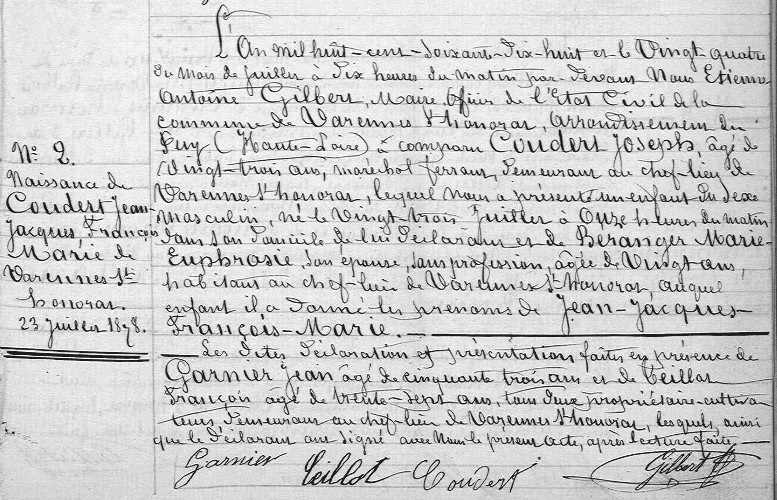 N.º 2.
Naissance de
Coudert Jean-
Jacques, François
Marie de
Varennes St
honorat.
23 juillet 1878.
L'An mil huit-cent-soixante-dix-huit et le Vingt quatre
du mois de juillet à dix heures du matin par-devant Nous Etienne
Antoine Gilbert, Maire, Officier de l'Etat Civil de la
commune de Varennes St honorat, arrondissement du
Puy (Haute-Loire) à comparu Coudert Joseph, âgé de
Vingt-trois ans, maréchal ferrant, demeurant au chef-lieu de
Varennes St honorat, lequel nous a présenté un enfant du sexe
masculin, né le Vingt-trois Juillet à Onze heures du matin
dans son domicile de lui déclarant et de Béranger Marie-
Euphrasie, son épouse, sans profession, âgée de Vingt ans,
habitant au chef-lieu de Varennes St honorat, auquel
enfant il a donné les prénoms de Jean-Jacques-
François-Marie.
Les dites déclaration et présentation faites en présence de
Garnier Jean âgé de cinquante trois ans et de Teillot
François âgé de trente-sept ans, tous deux propriétaire-cultiva-
teurs, demeurant au chef-lieu de Varennes St honorat, lesquels, ainsi
que le déclarant ont signé avec Nous le présent acte, après lecture faite.
Garnier Teillot Coudert Gilbert